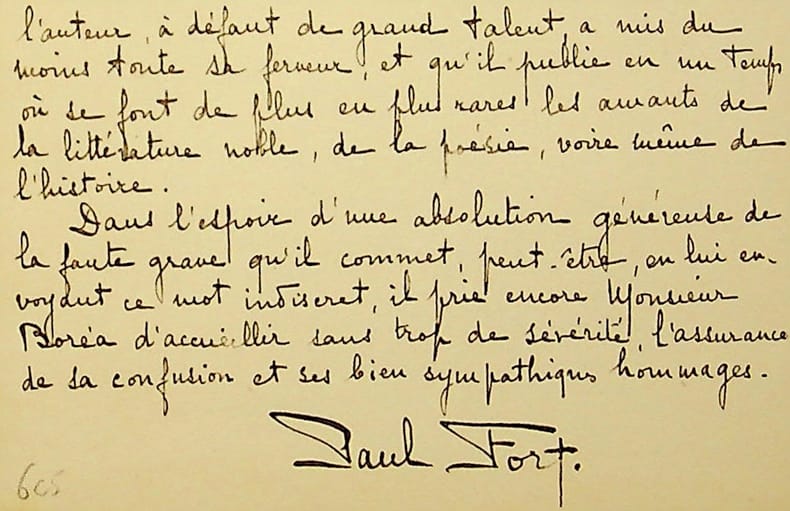 l'auteur, à défaut de grand talent, a mis du
moins toute sa ferveur, et qu'il publie en un temps
où se font de plus en plus rares les amants de
la littérature noble, de la poésie, voire même de
l'histoire.
Dans l'espoir d'une absolution généreuse de
la faute grave qu'il commet, peut-être, en lui en-
voyant ce mot indiscret, il prie encore Monsieur
Boréa d'accueillir sans trop de sévérité, l'assurance
de sa confusion et ses bien sympathiques hommages.
Paul Fort.